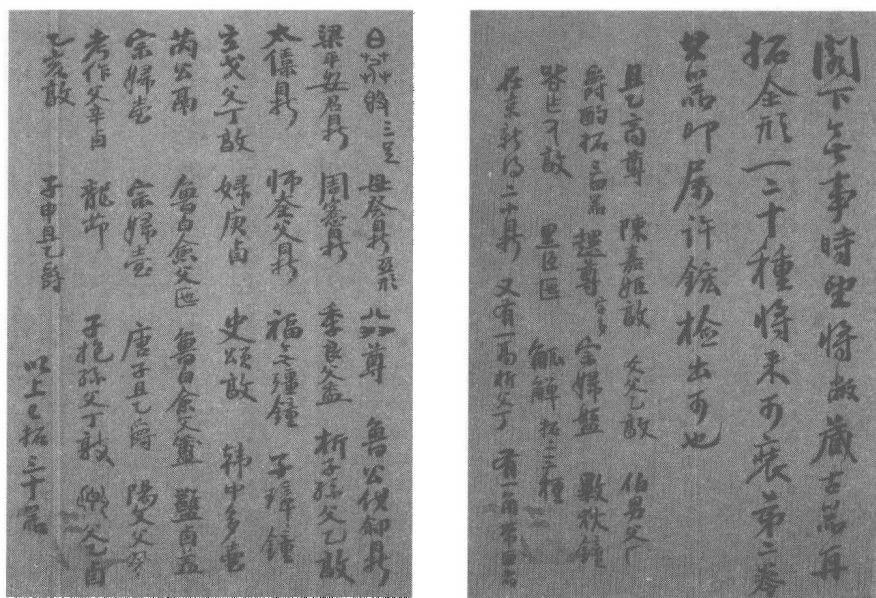 閣下無事時望將敝藏古器再
拓全形一二十種將來可裝第二卷
其器即屬許鋐檢出可也
且乙商尊 陳嘉姬敦 大父乙敦 伯男父
爵酌拓三四器 趩尊 宗婦盤 虢狄鐘
敦 匜 觚觶拓二三種
在京新得二小鼎 又有一鬲析父丁 有一角
日 三足 母癸鼎亞形 尊 魯公伐鄃鼎
梁平安君鼎 周窓鼎 季良父盉 析子孫父乙敦
太保鼎 師奎父鼎 福無疆鐘 子璋鐘
立戈父丁敦 婦庚卣 史頌敦 韓中多壺
芮公鬲 魯白俞父匜 魯白俞父簠 卣蓋
宗婦壺 宗婦壺 唐子且乙爵 陽文父癸
考作父辛卣 龍節 子抱孫父丁敦 父乙卣
乙亥敦 子申且乙爵 以上已拓三十器